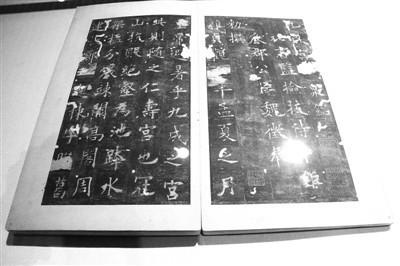 銘
監檢校侍
鹿郡公魏徵奉
勅撰
維貞觀年孟夏之月
皇帝避暑乎九成之宮
此則隨之仁壽宮也冠
山抗殿絕壑為池跨水
架楹分巖竦闕高閣周
建棟宇膠葛